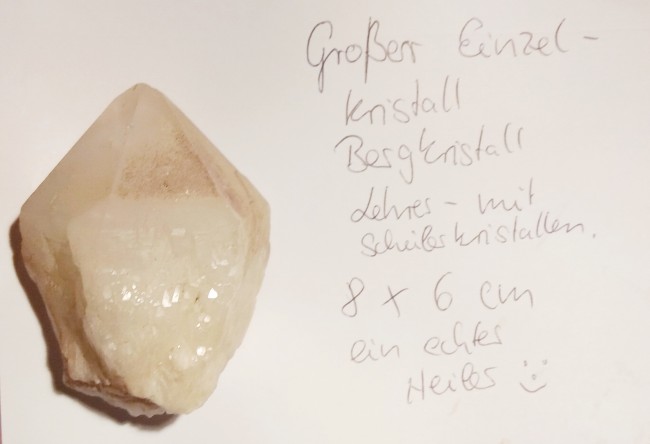 Großer Einzel-
kristall
Bergkristall
Lehrer - mit
Schülerkristallen.
8 x 6 cm
ein echter
Heiler :)